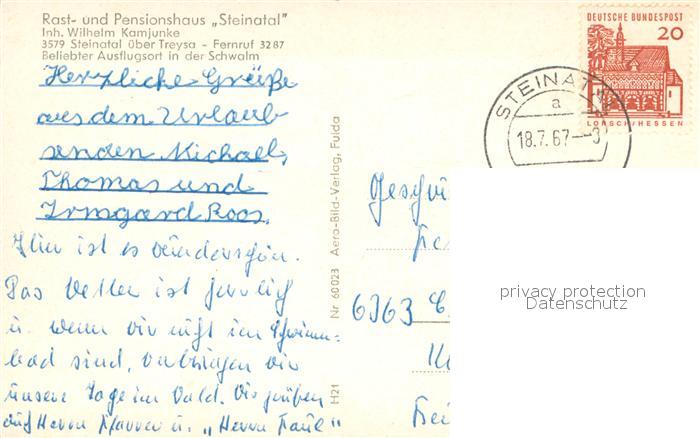 Rast- und Pensionshaus „Steinatal"
Inh. Wilhelm Kamjunke
3579 Steinatal über Treysa - Fernruf 3287
Beliebter Ausflugsort in der Schwalm
Herzliche Grüße
aus dem Urlaub
senden Michael,
Thomas und
Irmgard Roos.
Hier ist es wunderschön.
Das Wetter ist herrlich
u. wenn wir nicht im Schwimm-
bad sind, verbringen wir
unsere Tage im Wald. Wir grüßen
auch Herrn Pfarrer u. „Herrn Faul"
Nr. 60023 Aero-Bild-Verlag, Fulda
H21
DEUTSCHE BUNDESPOST
20
LORSCH/HESSEN
STEINAT
a
18.7.67
Geschw
6363
privacy protection
Datenschutz